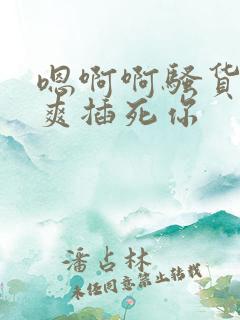 嗯啊啊骚货
爽插死你
潘占林
未经同意禁止转载